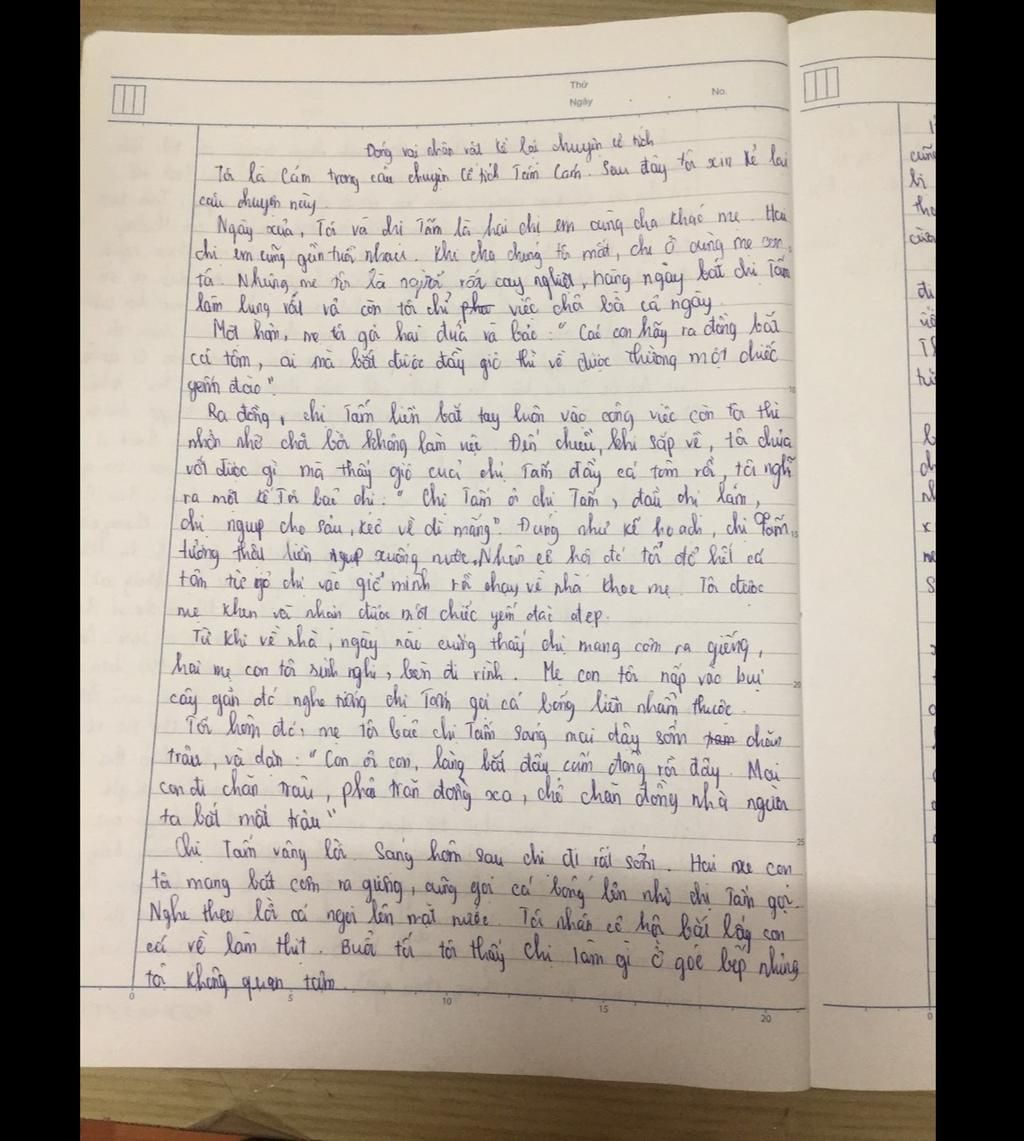 Thứ
Ngày . . No.
Đóng vai nhân vật kể lại chuyện cổ tích
Tôi là Cám trong câu chuyện cổ tích Tấm Cám. Sau đây tôi xin kể lại
câu chuyện này.
Ngày xửa, Tôi và chị Tấm là hai chị em cùng cha khác mẹ. Hai
chị em cũng gần tuổi nhau. Khi cha chúng tôi mất, chị ở cùng mẹ con
tôi. Nhưng mẹ tôi là người rất cay nghiệt, hàng ngày bắt chị Tấm
làm lụng vất vả còn tôi chỉ việc chơi bời cả ngày.
Một hôm, mẹ tôi gọi hai đứa và bảo: " Các con hãy ra đồng bắt
cá tôm, ai mà bắt được đầy giỏ thì về được thưởng một chiếc
yếm đào".
Ra đồng, chị Tấm liền bắt tay luôn vào công việc còn tôi thì
nhởn nhơ chơi bời không làm việc. Đến chiều, khi sắp về, tôi chưa
vớt được gì mà thấy giỏ của chị Tấm đầy cá tôm rồi, tôi nghĩ
ra một kế. Tôi bảo chị: " Chị Tấm ơi chị Tấm, đầu chị lấm,
chị ngụp cho sâu, kẻo về dì mắng". Đúng như kế hoạch, chị Tấm
tưởng thật liền ngụp xuống nước. Nhân cơ hội đó tôi đổ hết cá
tôm từ giỏ chị vào giỏ mình rồi chạy về nhà khoe mẹ. Tôi được
mẹ khen và nhận được một chiếc yếm đào đẹp.
Từ khi về nhà, ngày nào cũng thấy chị mang cơm ra giếng,
hai mẹ con tôi sinh nghi, bèn đi rình. Mẹ con tôi nấp vào bụi
cây gần đó nghe tiếng chị Tấm gọi cá bống liền nhẩm thuộc.
Tối hôm đó, mẹ tôi bảo chị Tấm sáng mai dậy sớm chăn
trâu, và dặn: " Con ơi con, làng bắt đầu cấm đồng rồi đấy. Mai
con đi chăn trâu, phải trăn đồng xa, chớ chăn đồng nhà người
ta bắt mất trâu"
Chị Tấm vâng lời. Sáng hôm sau chị đi rất sớm. Hai mẹ con
tôi mang bát cơm ra giếng, cũng gọi cá bống lên như chị Tấm gọi.
Nghe theo lời cá ngoi lên mặt nước. Tôi nhân cơ hội bắt lấy con
cá về làm thịt. Buổi tối tôi thấy chị làm gì ở góc bếp nhưng
tôi không quan tâm.
0 5 10 15 20